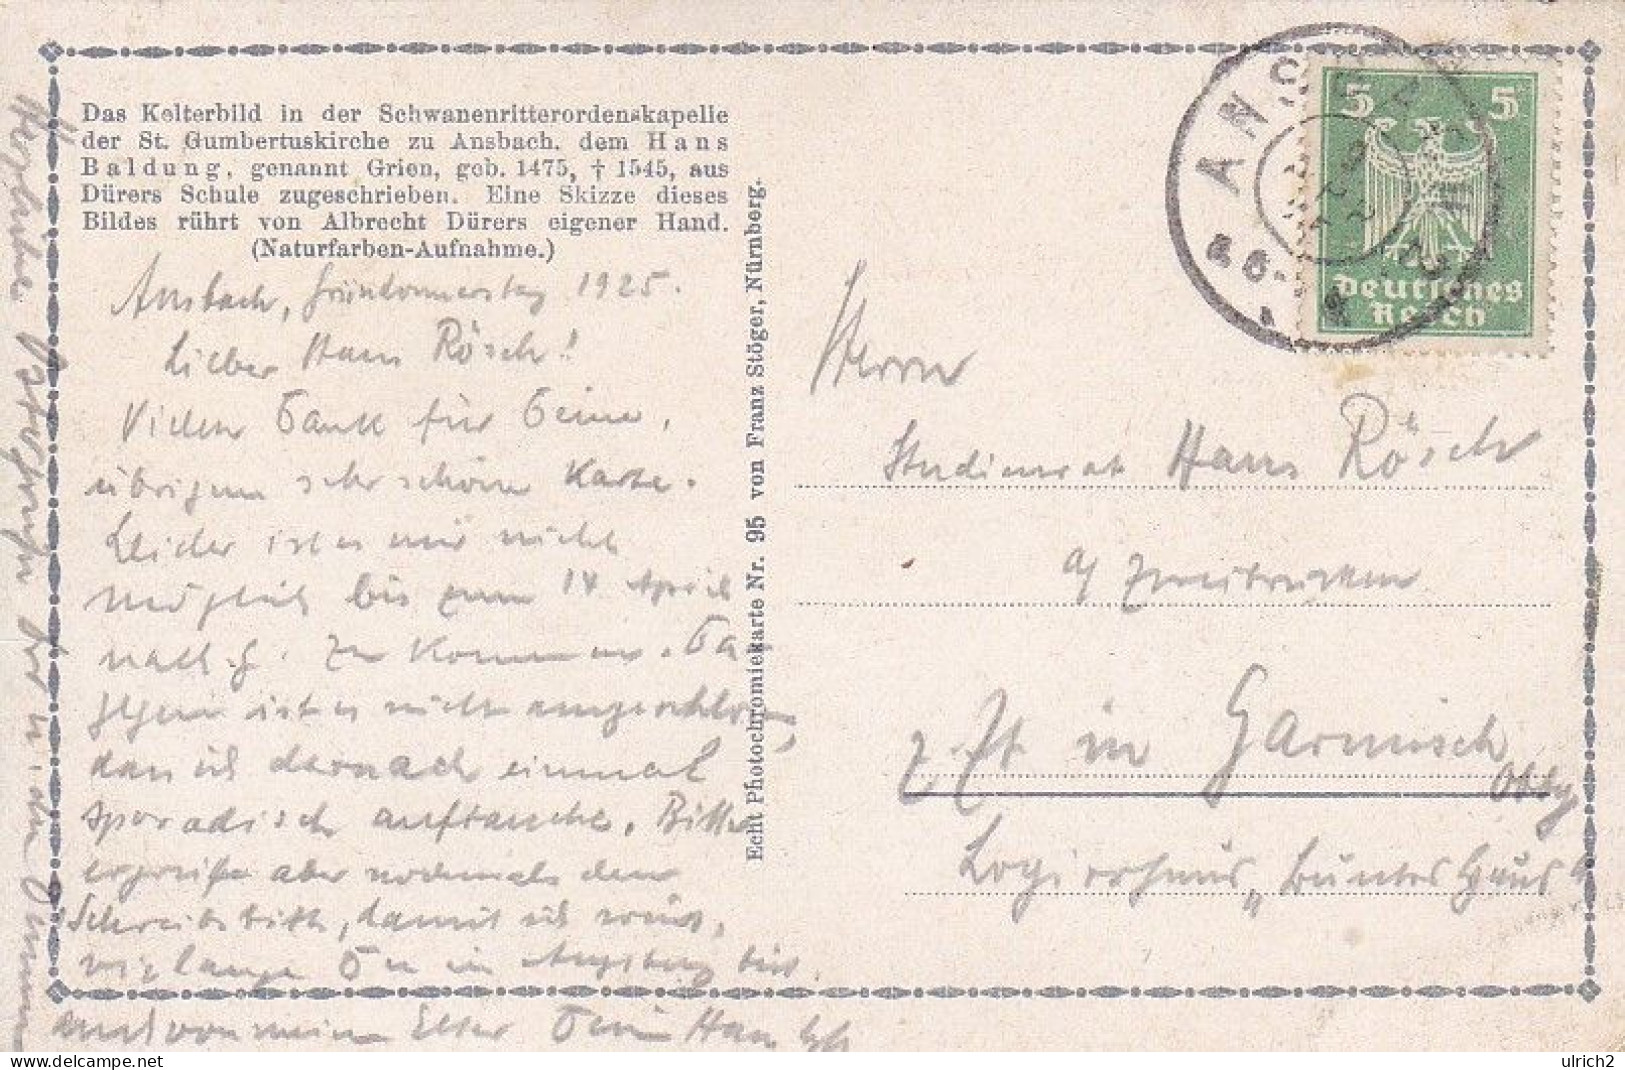 Das Kelterbild in der Schwanenritterordenskapelle
der St. Gumbertuskirche zu Ansbach, dem Hans
Baldung, genannt Grien, geb. 1475, † 1545, aus
Dürers Schule zugeschrieben. Eine Skizze dieses
Bildes rührt von Albrecht Dürers eigener Hand.
(Naturfarben-Aufnahme.)
Ansbach, Gründonnerstag 1925.
Lieber Hans Rösch!
Vielen Dank für Deine,
übrigens sehr schöne Karte.
Leider ist es mir nicht
möglich bis zum 14 April
nach G. zu kommen. Da-
gegen ist es nicht ausgeschlossen,
dass ich darnach einmal
sporadisch auftauche. Bitte
ergreife aber nochmals den
Schreibstift, damit ich weiss,
wie lange Du in Augsburg bist.
und von meinen Eltern Dein Hans
Herzliche Ostergrüsse Dir u. den Deinen
Echt Photochromiekarte Nr. 95 von Franz Stöger, Nürnberg.
ANSBACH
5 5
Deutsches
Reich
Herrn
Studienrat Hans Rösch
a/ Zweibrücken
z. Zt. in Garmisch
Obby
Logierhaus
ulrich2